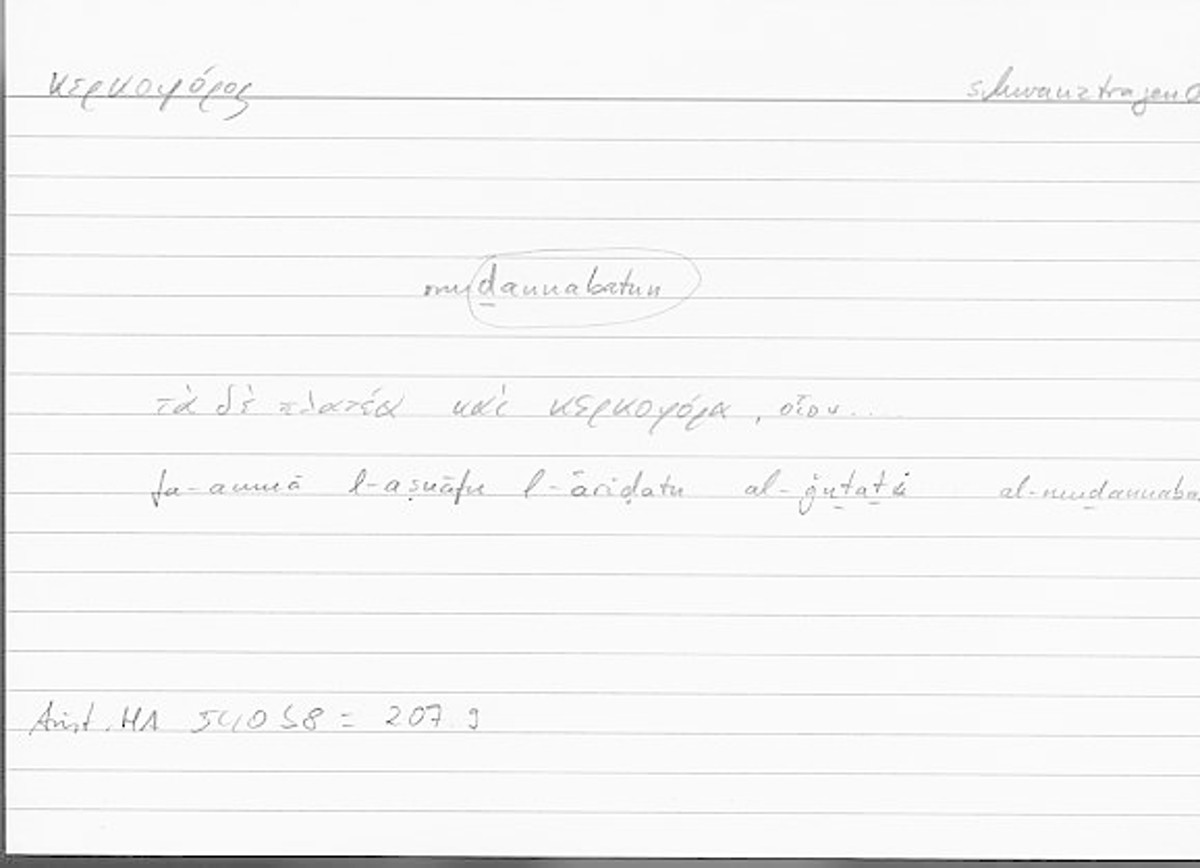 κερκοφόρος schwanztragend
muḏannabatun
τὰ δὲ πλατέα καὶ κερκοφόρα, οἷον....
fa-ammā l-aṣnāfu l-ʿāriḍatu al-ǧuṯaṯi al-muḏannaba
Arist. HA 540 b8 = 207. 9